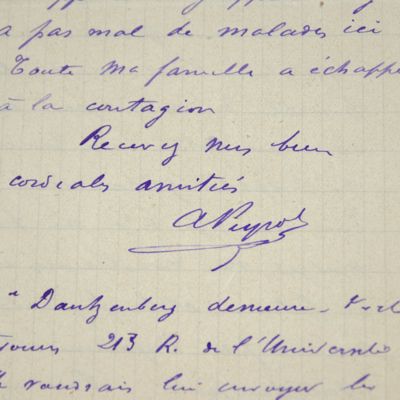 a pas mal de malades ici
Toute ma famille a échappé
à la contagion
Recevez mes bien
cordiales amitiés
APeyrot
Dautzenberg demeure-t-il
toujours 213 R. de l'Université
voudrais lui envoyer les